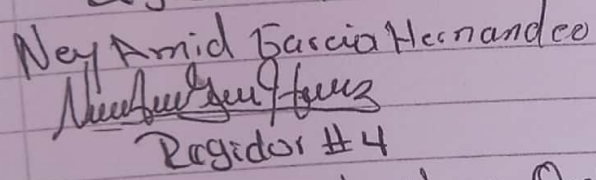 Ney Amid Garcia Hernandeo
Regidor #4